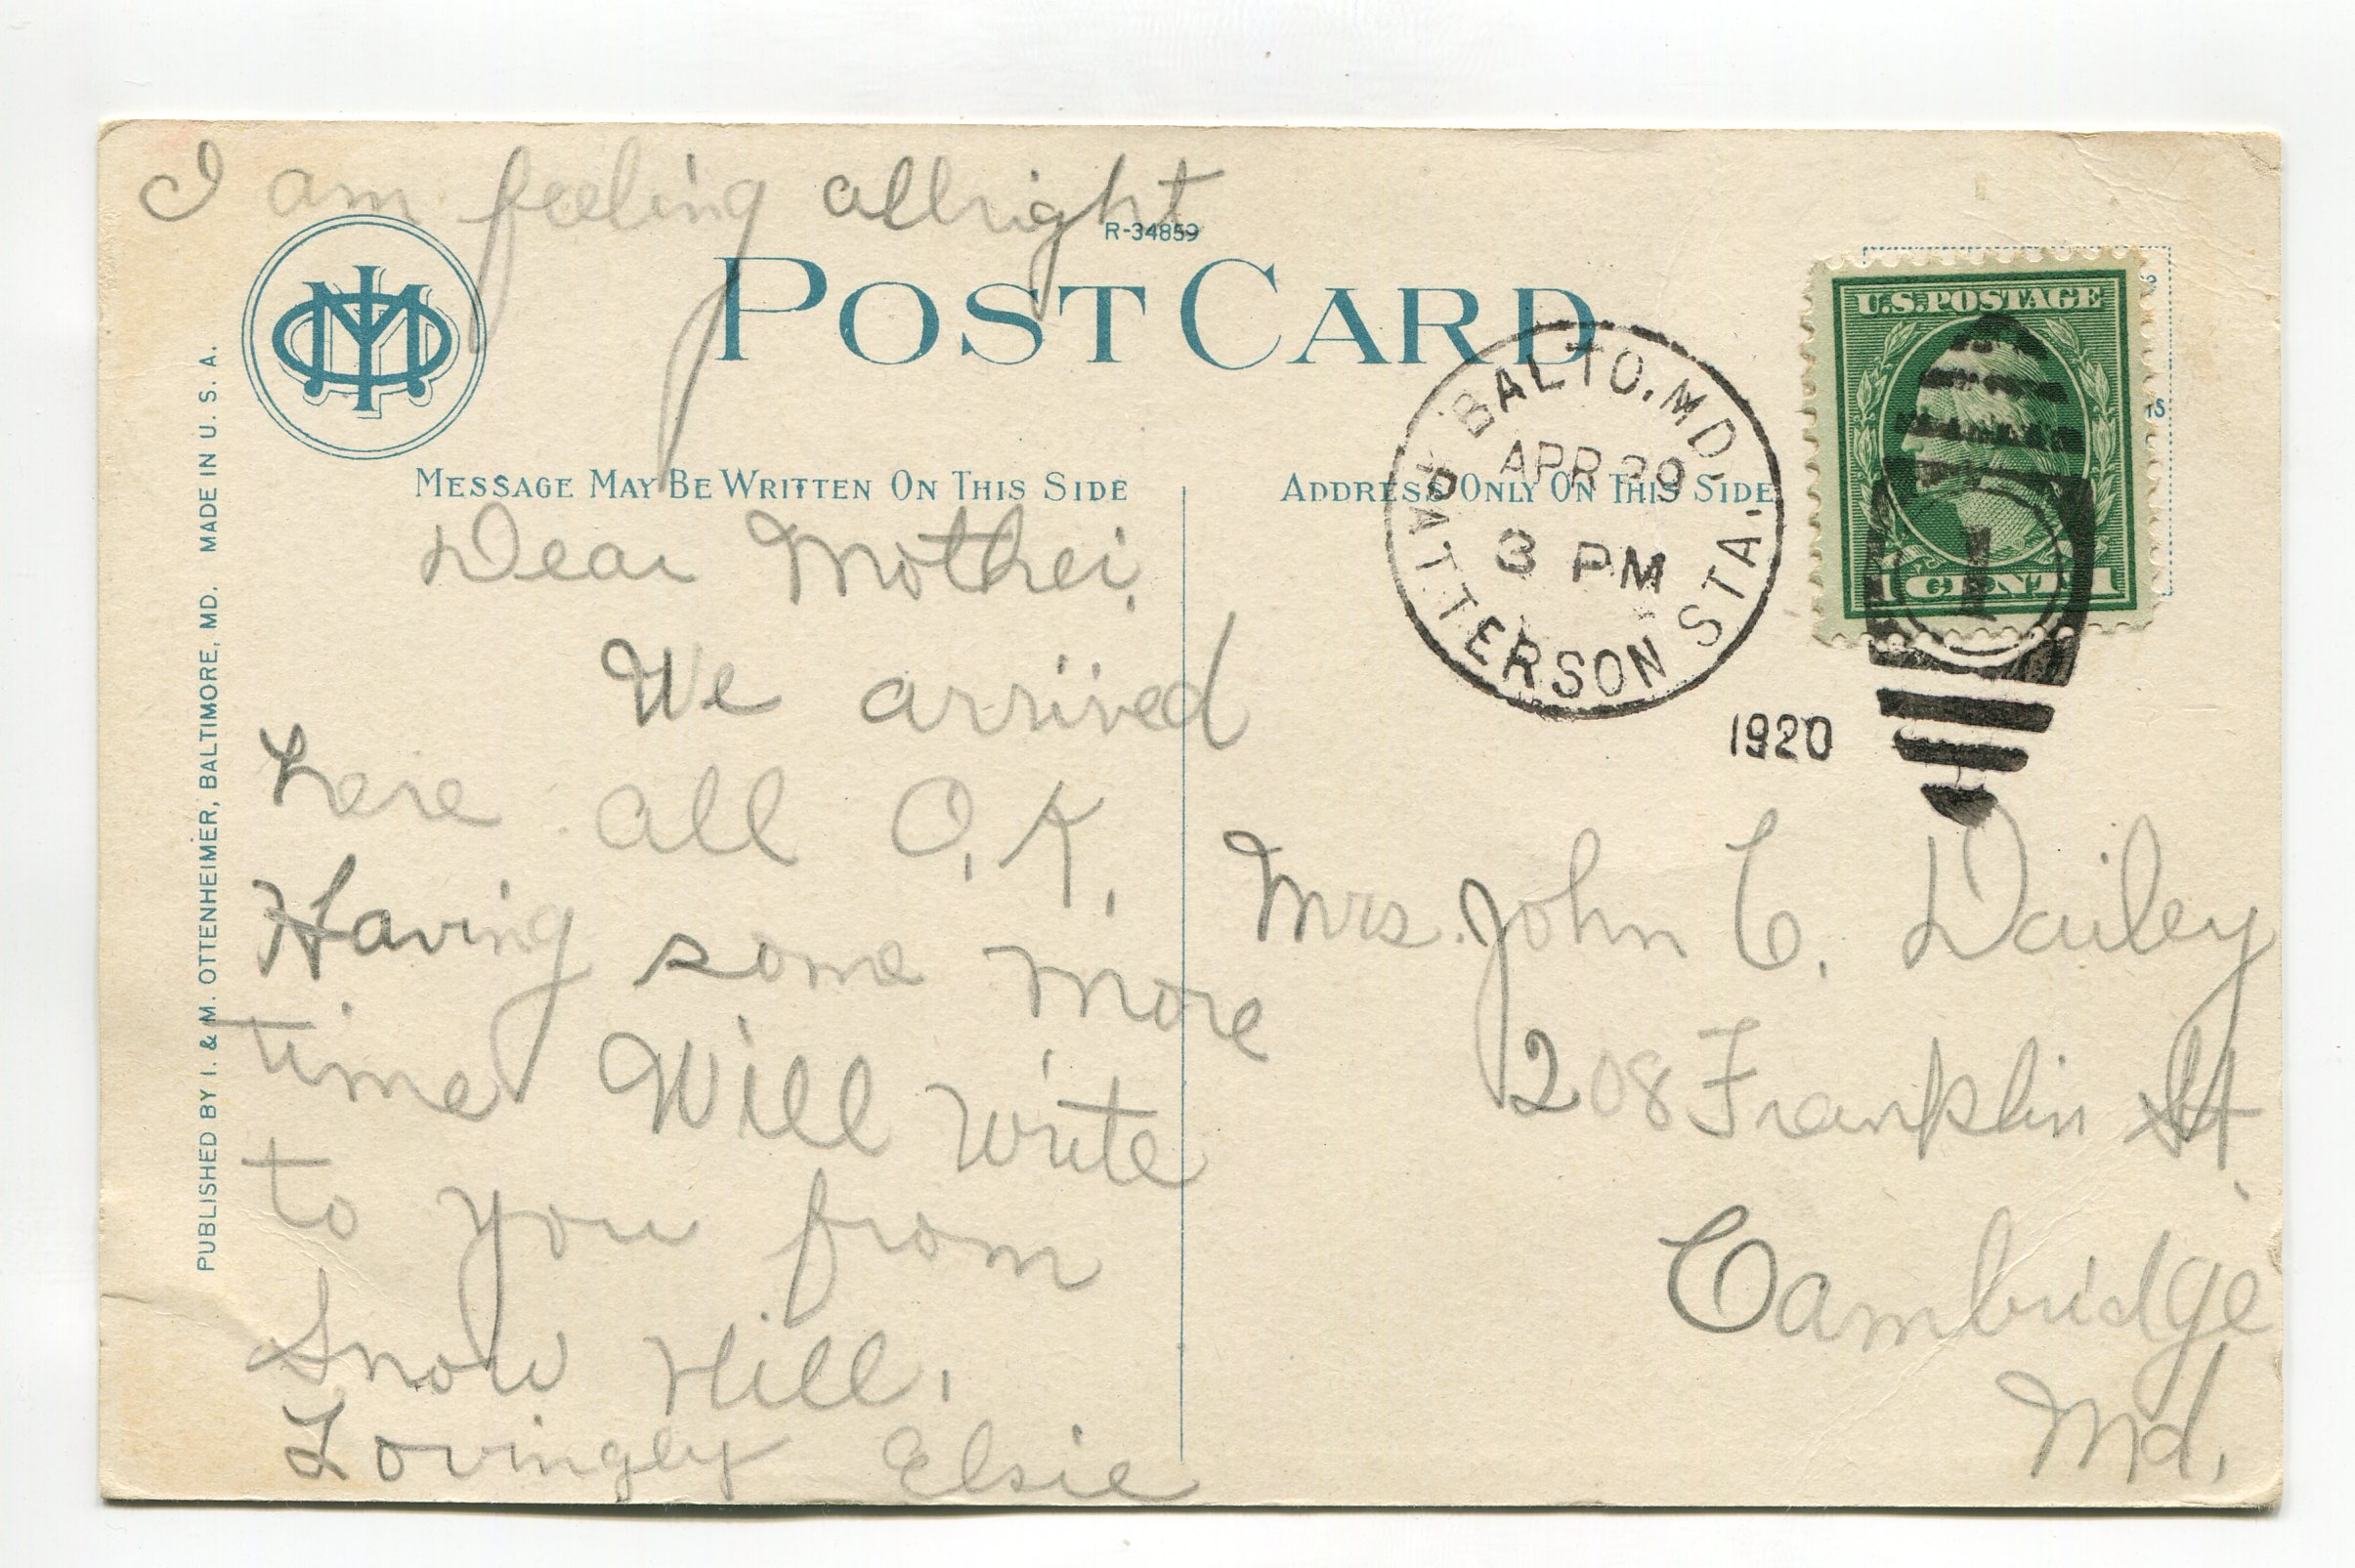 I am feeling allright
R-34859
POST CARD
MESSAGE MAY BE WRITTEN ON THIS SIDE
ADDRESS ONLY ON THIS SIDE
PUBLISHED BY I. & M. OTTENHEIMER, BALTIMORE, MD. MADE IN U. S. A.
Dear Mother,
We arrived
here all O.K.
Having some more
time Will write
to you from
Snow Hill.
Lovingly Elsie
BALTO. MD.
APR 29
3 PM
PATTERSON STA.
1920
U.S. POSTAGE
1 CENT 1
Mrs. John C. Dailey
208 Franklin St.
Cambridge
Md.